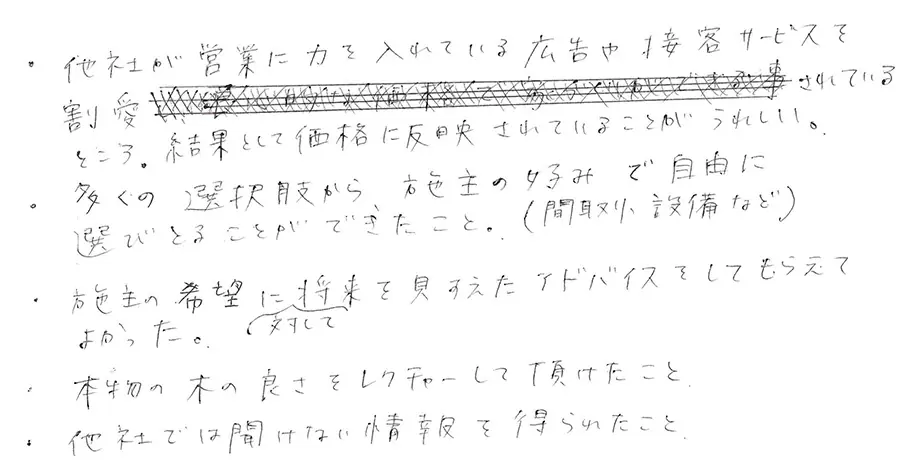 ・他社が営業に力を入れている広告や接客サービスを
割愛されている
ところ。結果として価格に反映されていることがうれしい。
・多くの選択肢から施主の好みで自由に
選びとることができたこと。(間取り、設備など)
・施主の希望に将来を見すえたアドバイスをしてもらえて
よかった。 対して
・本物の木の良さをレクチャーして頂けたこと
・他社では聞けない情報を得られたこと